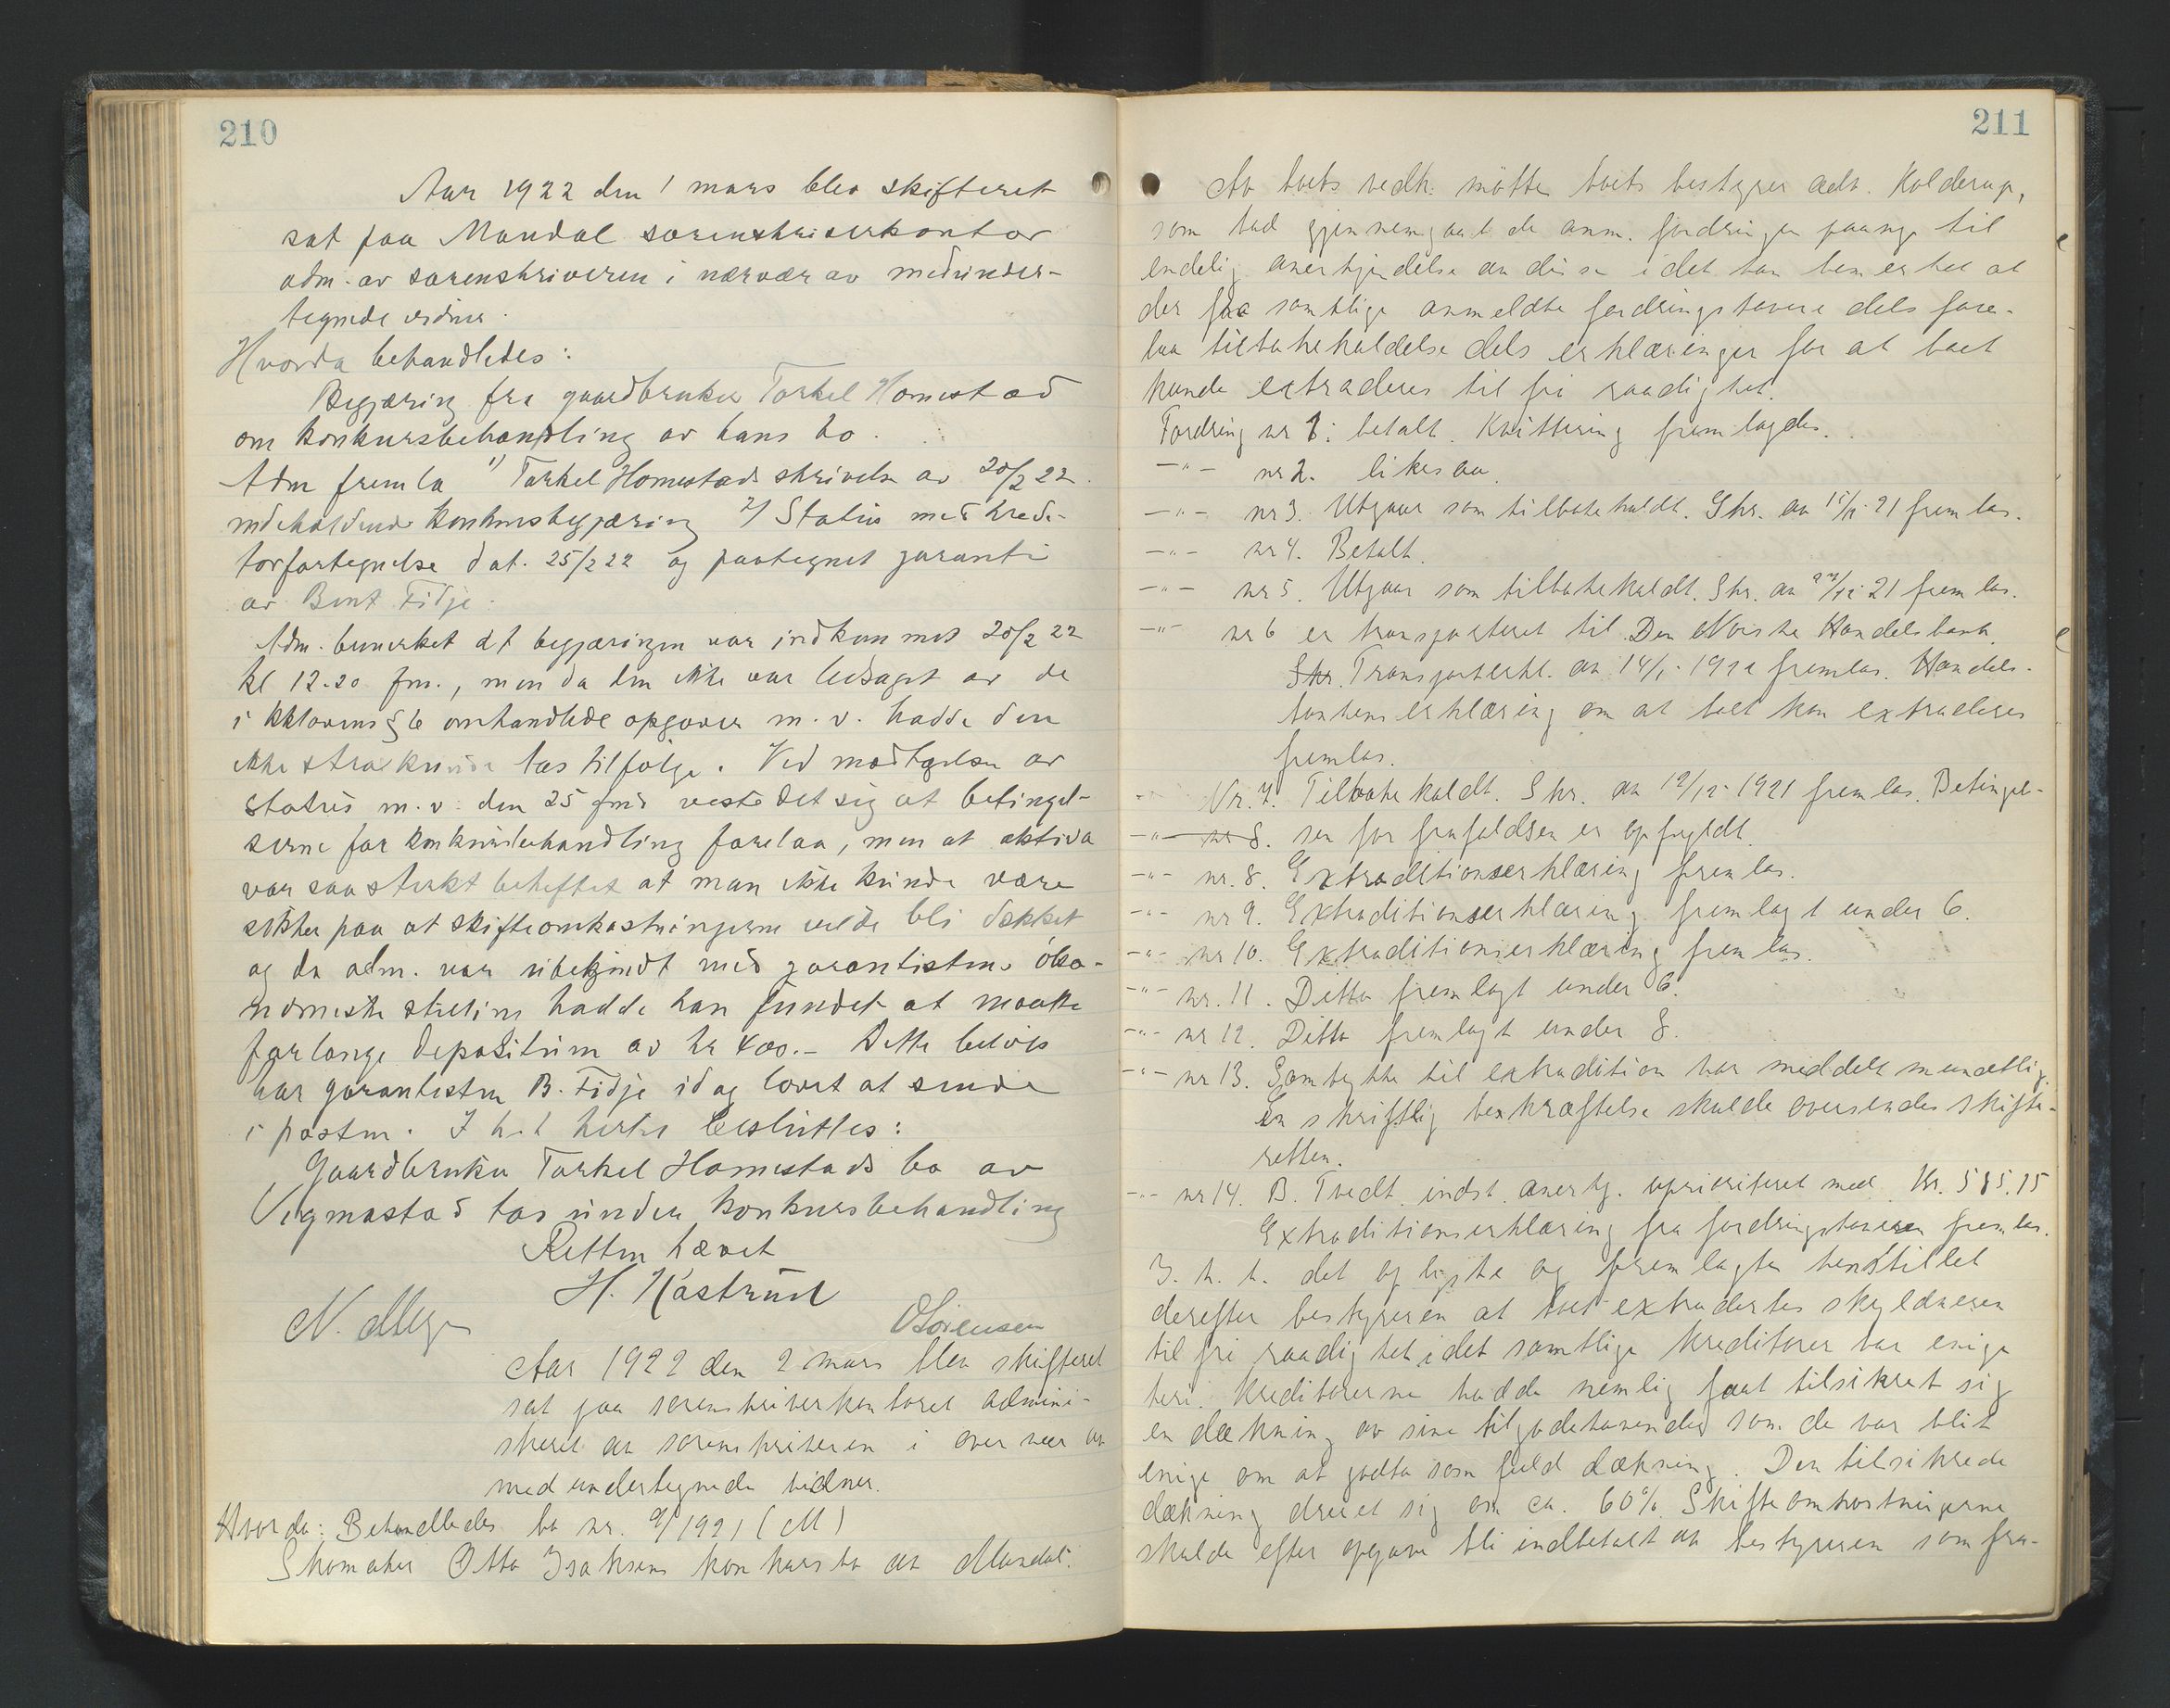 210
Aar 1922 den 1 mars blev skifteret
sat paa Mandal sorenskriverkontor
adm. av sorenskriveren i nærvær av medunder-
tegnede vidner.
Hvorda behandledes:
Begjæring fra gaardbruker Torkel Homestad
om konkursbehandling av hans bo.
Adm fremla 1) Torkel Homestads skrivelse av 20/2 22
indeholdende konkursbegjæring 2/ Status med kredi-
torfortegnelse dat. 25/2 22 og paategnet garanti
av Bent Fidje.
Adm. bemerket at begjæringen var indkommet 20/2 22
kl 12.20 fm., men da den ikke var ledsaget av de
i kklovens § 6 omhandlede opgaver m.v. hadde den
ikke strax kunde tas tilfølge. Ved modtagelsen av
status m.v. den 25 fmd viste det sig at betingel-
serne for konkursbehandling forelaa, men at aktiva
var saa sterkt beheftet at man ikke kunde være
sikker paa at skifteomkostningerne vilde bli dækket
og da adm. var ubekjendt med garantistens øko-
nomiske stilling hadde han fundet at maatte
forlange depositum av kr 400.- Dette beløp
har garantisten B. Fidje idag lovet at sende
i posten. I h.t. hertil besluttes:
Gaardbruker Torkel Homestads bo av
Vigmostad tas under konkursbehandling
Retten hævet
H. Kastrud
N. Meyer OSørensen
Aar 1922 den 2 mars blev skifteret
sat paa sorenskriverkontoret admini-
streret av sorenskriveren i overvær av
medundertegnede vidner.
Hvorda: Behandledes bo nr. 9/1921 (M)
Skomaker Otto Isaksens konkursbo av Mandal.
211
Av boets vedk. møtte boets bestyrer adv. Kolderup,
som bad gjennemgaat de anm. fordringer paany til
endelig anerkjendelse av disse idet han bemerket at
der fra samtlige anmeldte fordringshavere dels fore-
laa tilbakekaldelse dels erklæringer for at boet
kunde extraderes til fri raadighet.
Fordring nr 1: betalt. Kvittering fremlagdes.
-"- nr 2. likesaa.
-"- nr 3. Utgaar som tilbakekaldt. Skr. av 15/12 21 fremlas.
-"- nr 4. Betalt.
-"- nr 5. Utgaar som tilbakekaldt. Skr. av /12 21 fremlas.
-"- nr 6 er transporteret til Den Norske Handelsbank.
Skr. Transporterkl. av 14/1 1922 fremlas. Handels-
bankens erklæring om at boet kan extraderes
fremlas.
- Nr. 7. Tilbakekaldt. Skr. av 12/12 1921 fremlas. Betingel-
-"- nr 8. sen for frafaldsen er opfyldt.
-"- nr. 8. Extraditionserklæring fremlas.
-"- nr 9. Extraditionserklæring fremlagt under 6.
-"- nr 10. Extraditionserklæring fremlas.
-"- nr. 11. Ditto fremlagt under 6.
-"- nr 12. Ditto fremlagt under 8.
-"- nr 13. Samtykke til extradition har meddelt mundtlig.
En skriftlig bekræftelse skulde oversendes skifte-
retten.
-"- nr 14. B. Tvedt indst. anerkj. uprioriteret med Kr. 585.15
Extraditionserklæring fra fordringshaveren fremlas.
I. h. t. det oplyste og fremlagte henstillet
derefter bestyreren at boet extradertes skyldneren
til fri raadighet idet samtlige kreditorer var enige
heri. Kreditorerne hadde nemlig faat tilsikret sig
en dækning av sine tilgodehavender som de var blit
enige om at godta som fuld dækning. Den tilsikrede
dækning dreiet sig om ca. 60%. Skifteomkostningerne
skulde efter opgave bli indbetalt av bestyreren som fra-